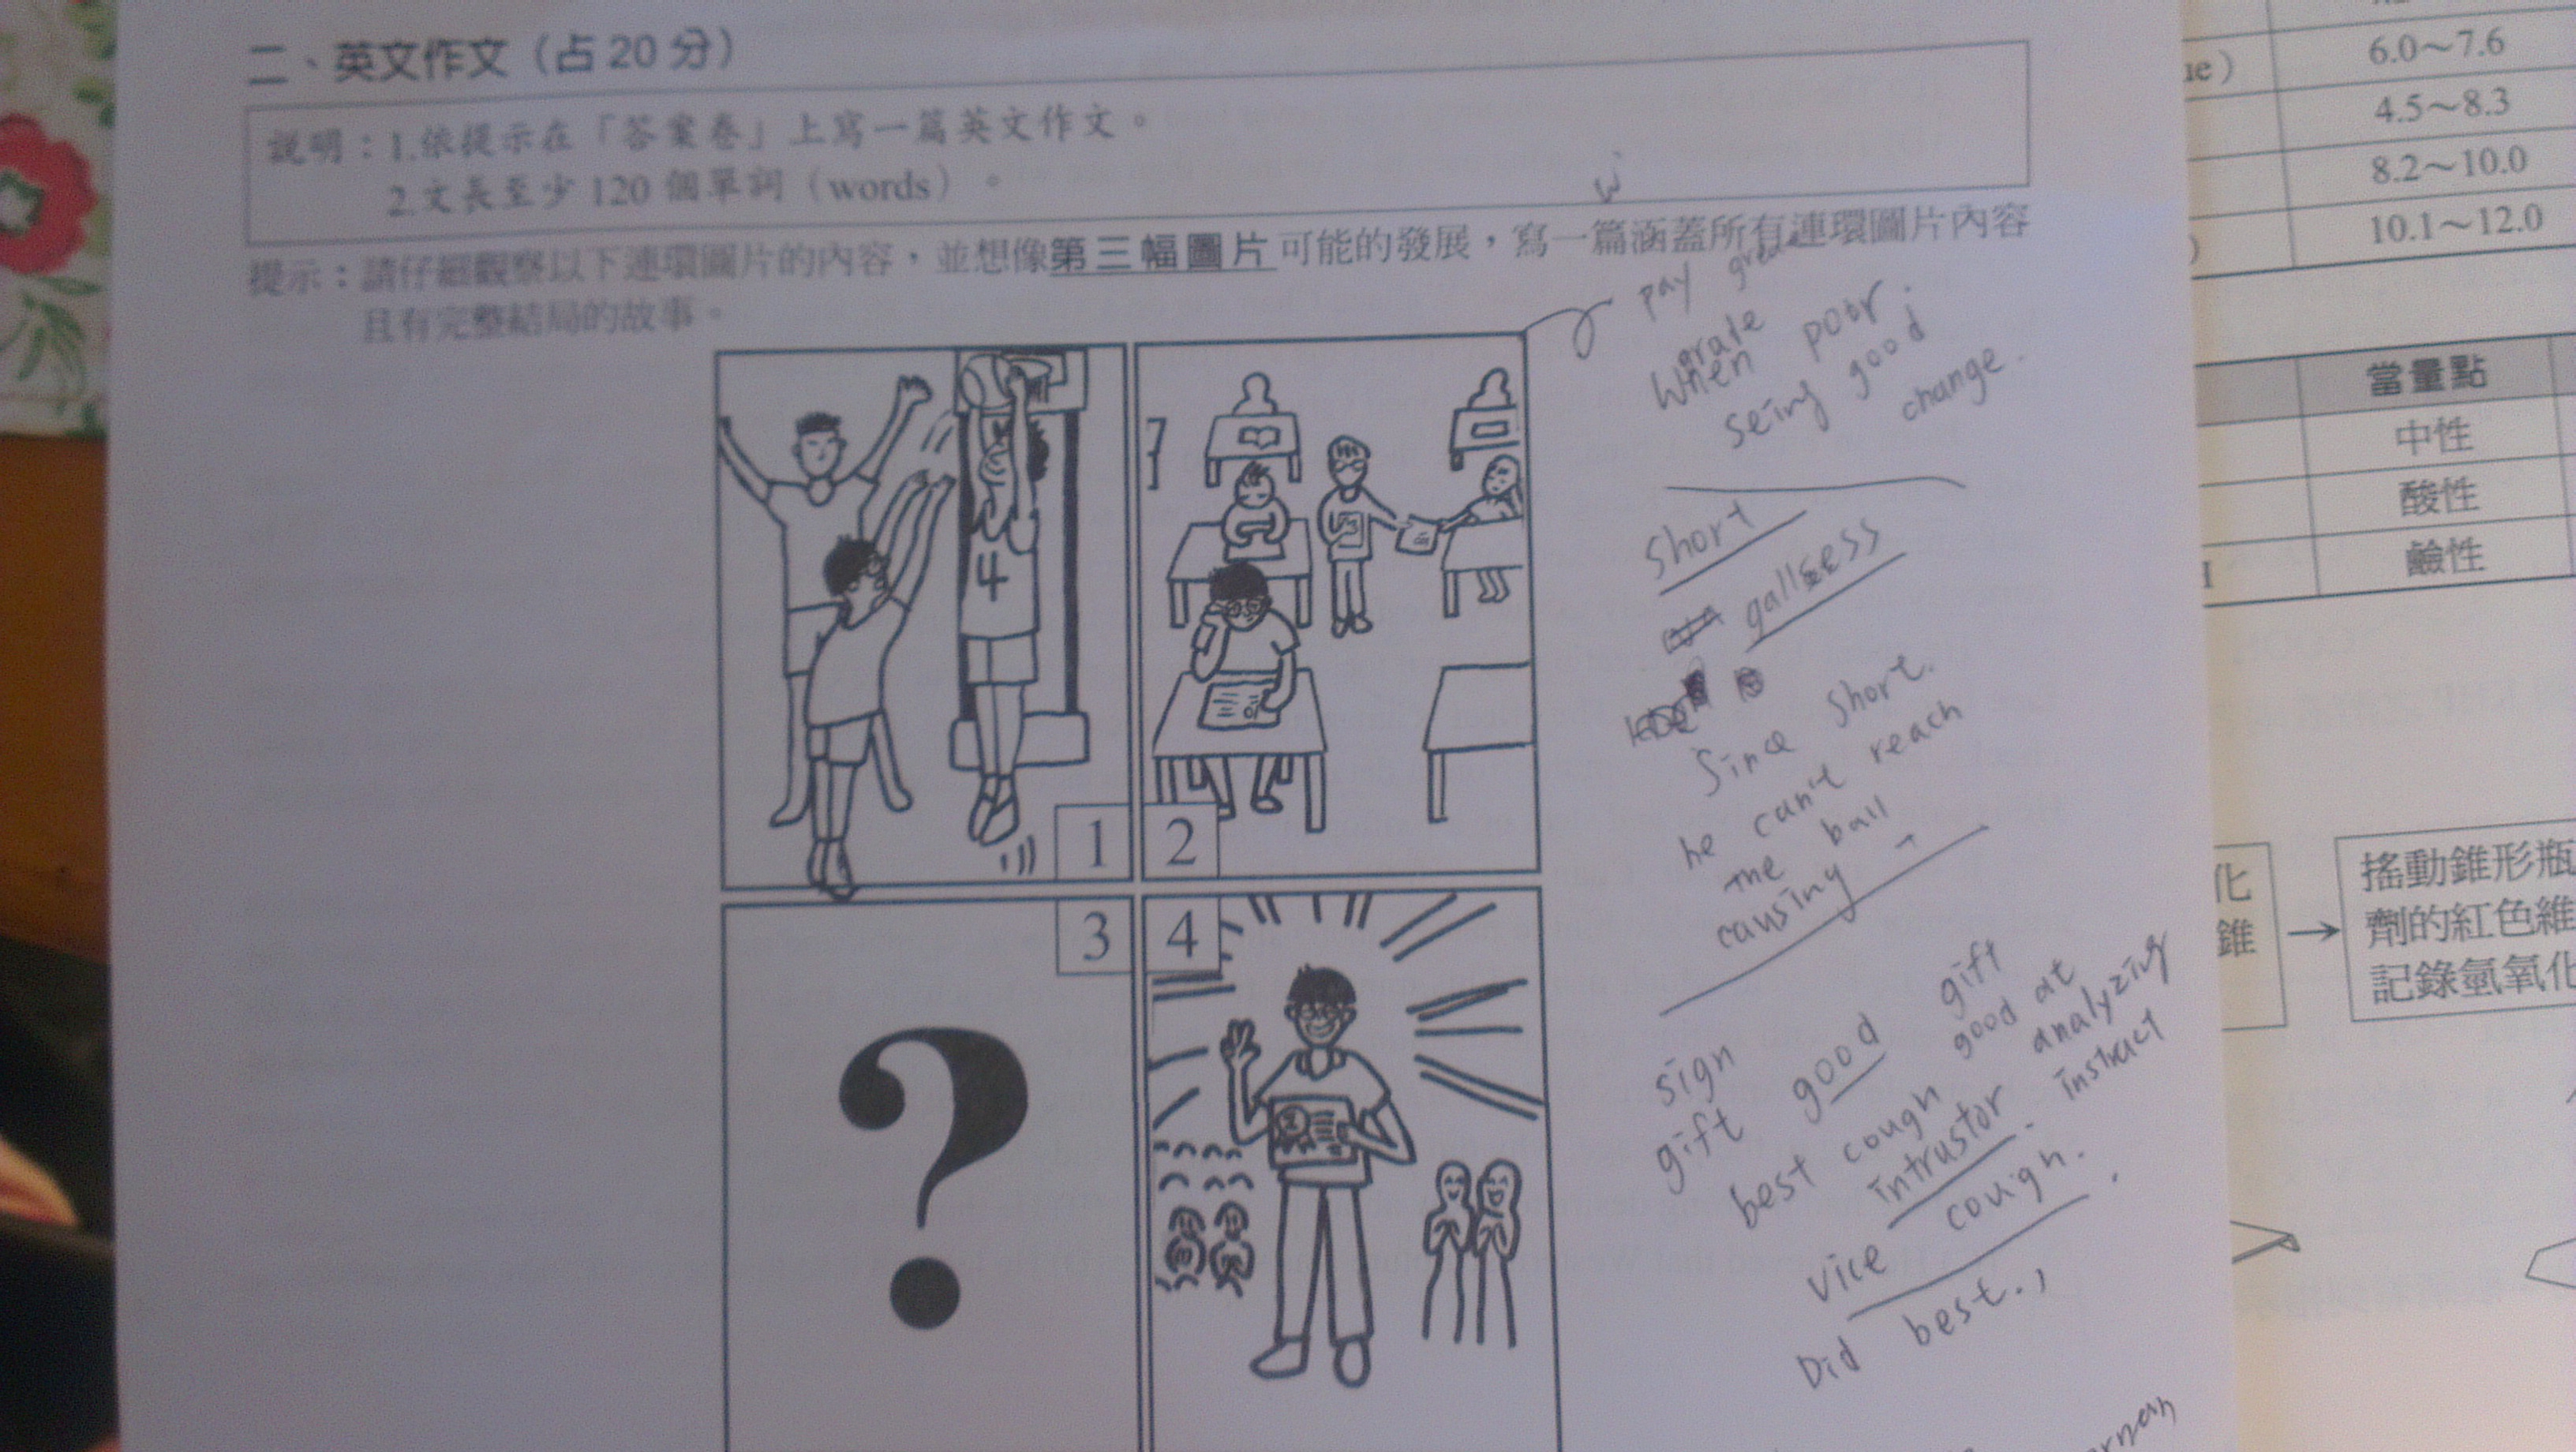 二、英文作文（占 20 分）
說明：1.依提示在「答案卷」上寫一篇英文作文。
2.文長至少 120 個單詞（words）。
提示：請仔細觀察以下連環圖片的內容，並想像第三幅圖片可能的發展，寫一篇涵蓋所有連環圖片內容
且有完整結局的故事。
4
1
2
3
4
?
W
pay
grade
When poor
seing good
change.
short
Since short.
he can't reach
the ball
causing
sign
gift good gift
best cough good at
intrustor analyzing
instruct
vice cough.
Did best.,
ue）
6.0～7.6
4.5～8.3
8.2～10.0
10.1～12.0
當量點
中性
酸性
鹼性
化
錐
→
搖動錐形瓶
劑的紅色維
記錄氫氧化